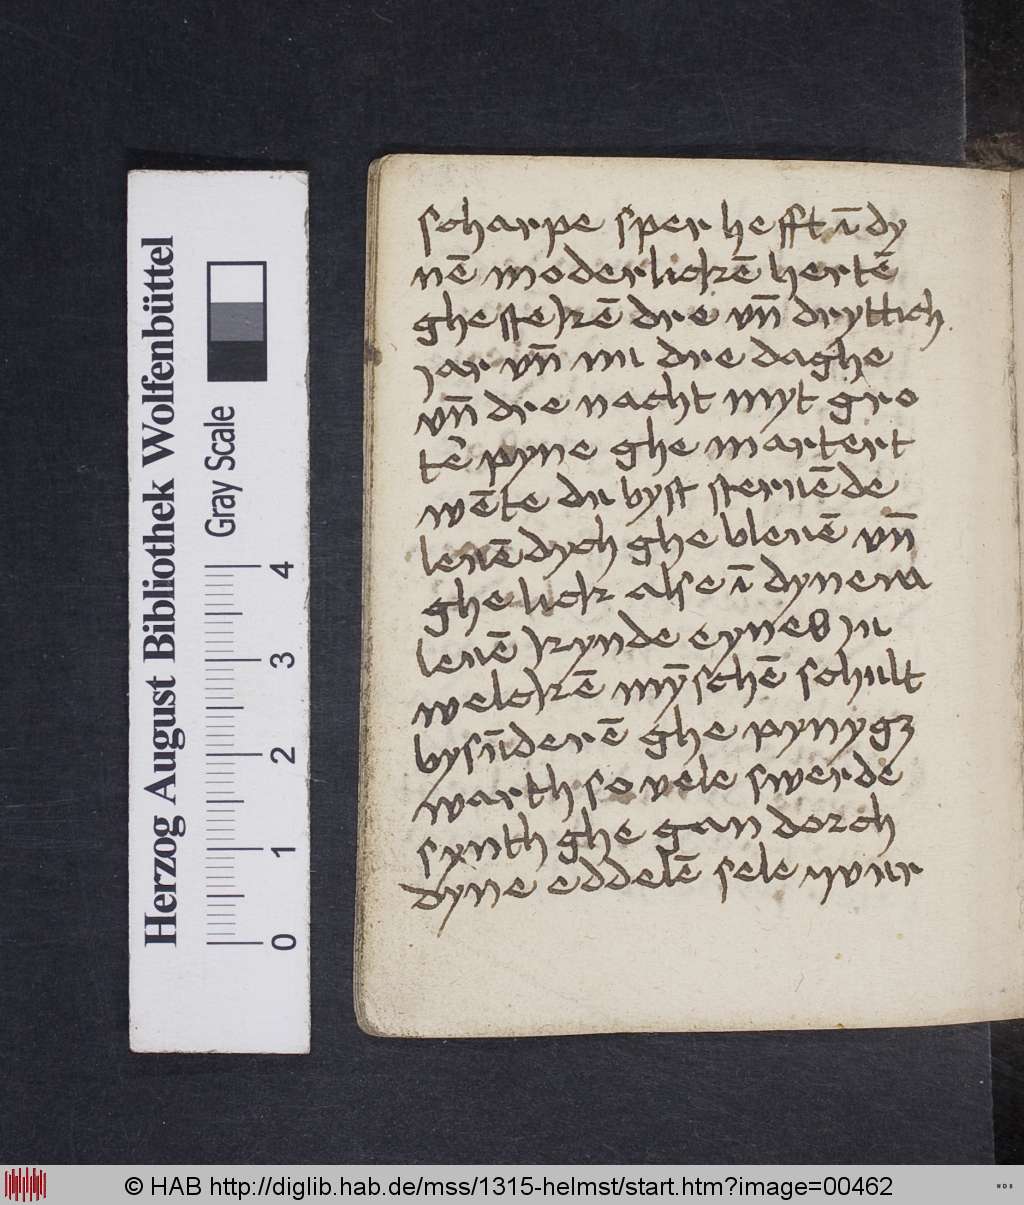 scharpe sper hefft ī dy
nē moderlickē hertē
ghestekē dre vn̄ dryttich
jar vn̄ nu dre daghe
vn̄ dre nacht myt gro
tē pyne ghe martert
wēte du byst steruēde
leuē dych ghe bleuē vn̄
ghe lick alse ī dynem
leuē kynde eynes ju
welckē mȳschē schult
bysūderē ghe pynyget
warth so vele swerde
synth ghe gan dorch
dyne eddelē sele
Herzog August Bibliothek Wolfenbüttel
Gray Scale
0 1 2 3 4
© HAB http://diglib.hab.de/mss/1315-helmst/start.htm?image=00462